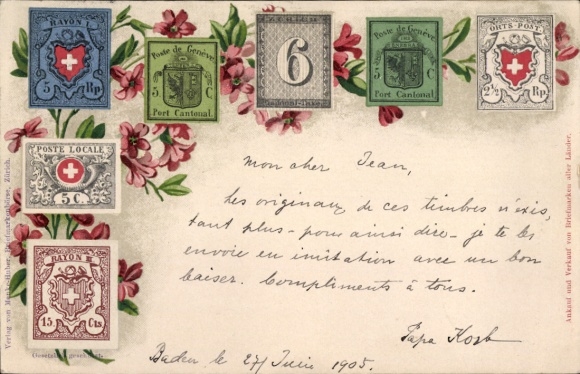 RAYON I.
5 Rp
Poste de Genève
5 C
Port Cantonal
ZÜRICH
6
Poste de Genève
5 C
Port Cantonal
ORTS-POST
2½ Rp
POSTE LOCALE
5 C.
RAYON III
15 Cts.
Mon cher Jean,
Les originaux de ces timbres n'exis,
tant plus - pour ainsi dire - je te les
envoie en imitation avec un bon
baiser. Compliments à tous.
Papa
Baden le 27 Juin 1905.
Verlag von Zürich.
Gesetzlich geschützt
Ankauf und Verkauf von Briefmarken aller Länder.